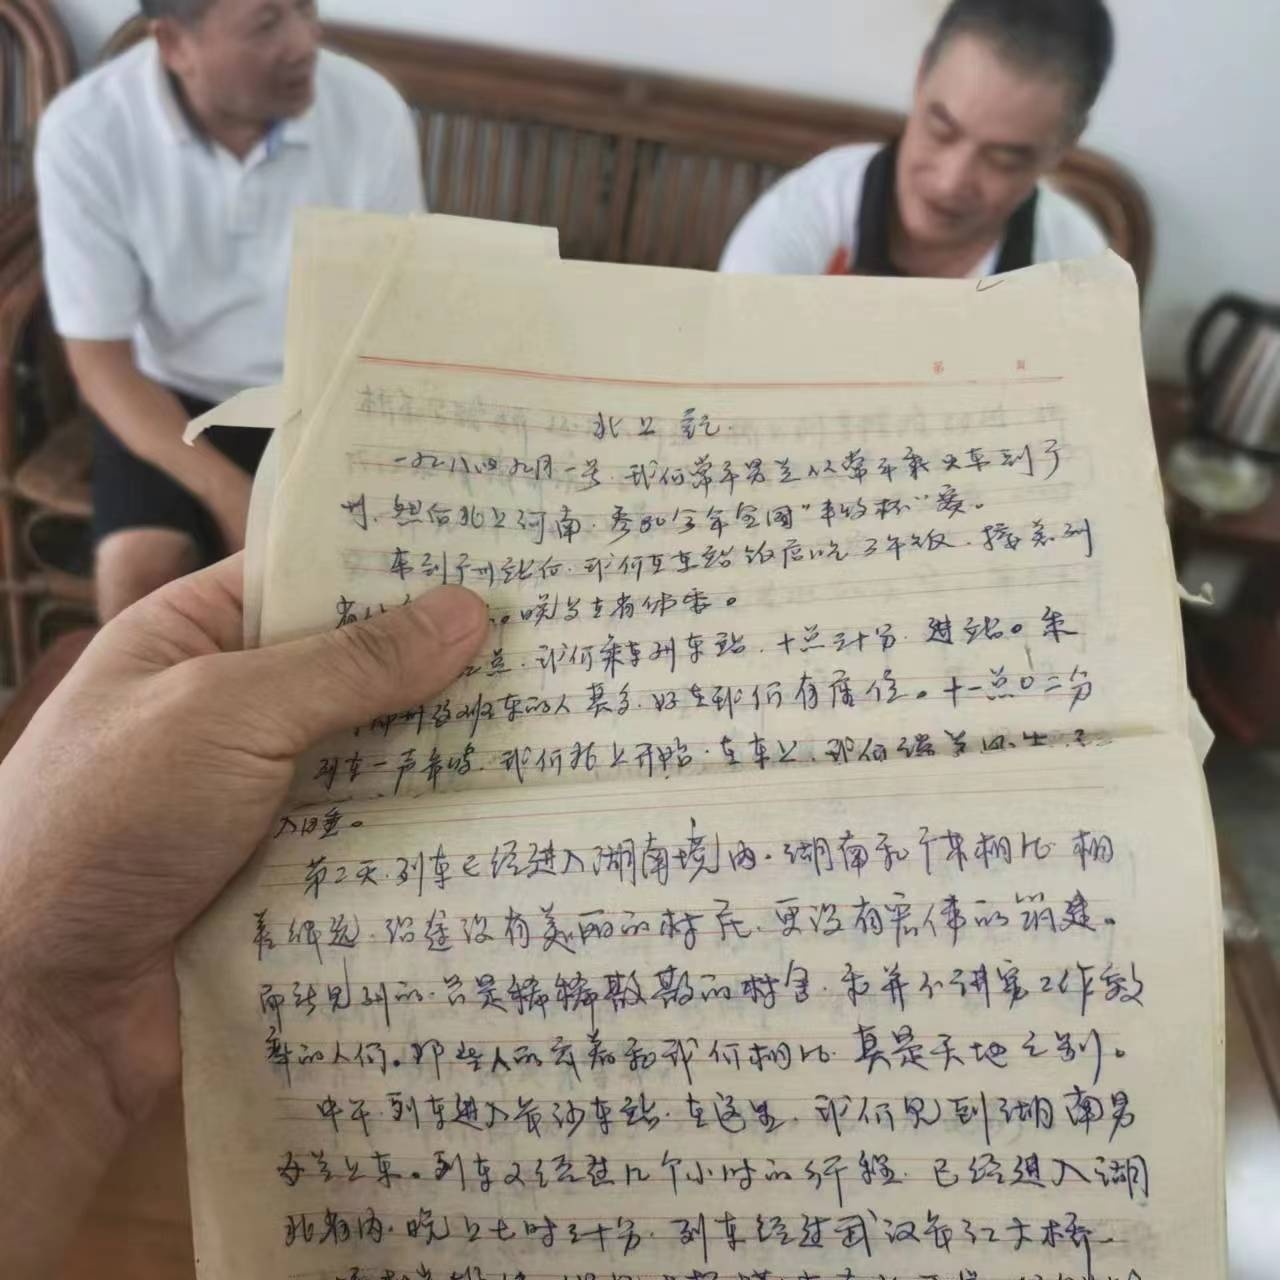 第 页
北上记.
一九八四九月一号.我们常平男兰从常平乘火车到广
州,然后北上河南.参加今年全国"丰收杯"赛。
车到广州站后.我们在车站饭店吃了午饭.接着到
省体 。晚上在省体委。
点.我们乘车到车站.十点三十分.进站。乘
班车的人真多.好在我们有座位。十一点0二分
列车一声长鸣.我们北上开始.在车上.我们
入睡。
第二天.列车已经进入湖南境内.湖南和广东相比.相
差很远.沿途没有美丽的村庄.更没有宏伟的建。
而站见到的.只是稀稀散散的村舍.和并不讲究工作效
率的人们。那些人的衣着和我们相比.真是天地之别。
中午.列车进入长沙车站.在这里.我们见到湖南男
女兰上车。列车又经过几个小时的行程.已经进入湖
北省内.晚上七时三十分.列车经过武汉长江大桥